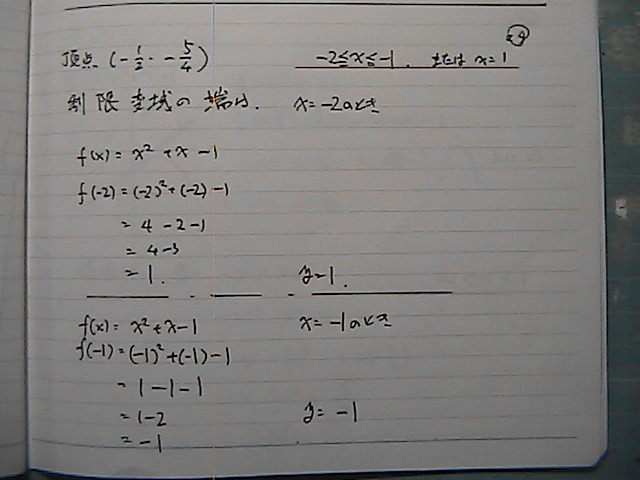 頂点 (-1/2, -5/4) -2≦x≦-1, または x=1
制限変域の端は, x=-2のとき
f(x)= x²+x-1
f(-2)=(-2)²+(-2)-1
= 4-2-1
= 4-3
= 1. y=1.
f(x)= x²+x-1 x=-1のとき
f(-1)=(-1)²+(-1)-1
= 1-1-1
= 1-2 y=-1
= -1